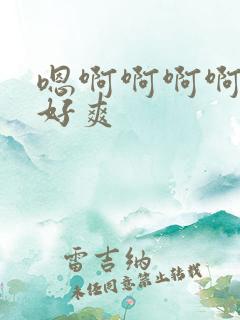 嗯啊啊啊啊
好爽
雷吉纳
未经同意禁止转载